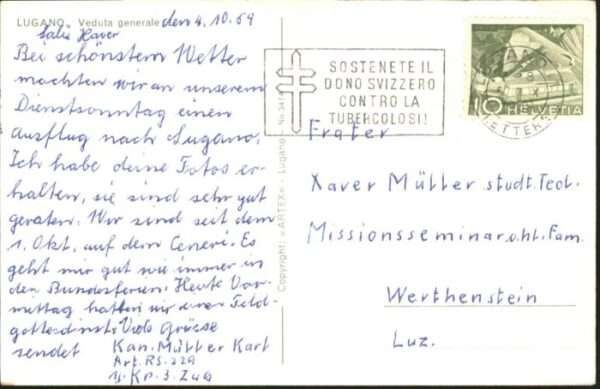 LUGANO. Veduta generale
den 4. 10. 64
Salü Xaver
Bei schönstem Wetter
machten wir an unserem
Dienstsonntag einen
Ausflug nach Lugano.
Ich habe deine Fotos er-
halten, sie sind sehr gut
geraten. Wir sind seit dem
1. Okt. auf dem Ceneri. Es
geht mir gut wie immer in
den Bundesferien. Heute Vor-
mittag hatten wir einen Feld-
gottesdinst. Viele Grüsse
sendet Kan. Müller Karl
Art. RS. 229
Kp. 3. Zug
Copyright: «ARTEX» - Lugano - No. 541
SOSTENETE IL
DONO SVIZZERO
CONTRO LA
TUBERCOLOSI!
10 HELVETIA
Frater
Xaver Müller studt. Teol.
Missionsseminar v. hl. Fam.
Werthenstein
Luz.